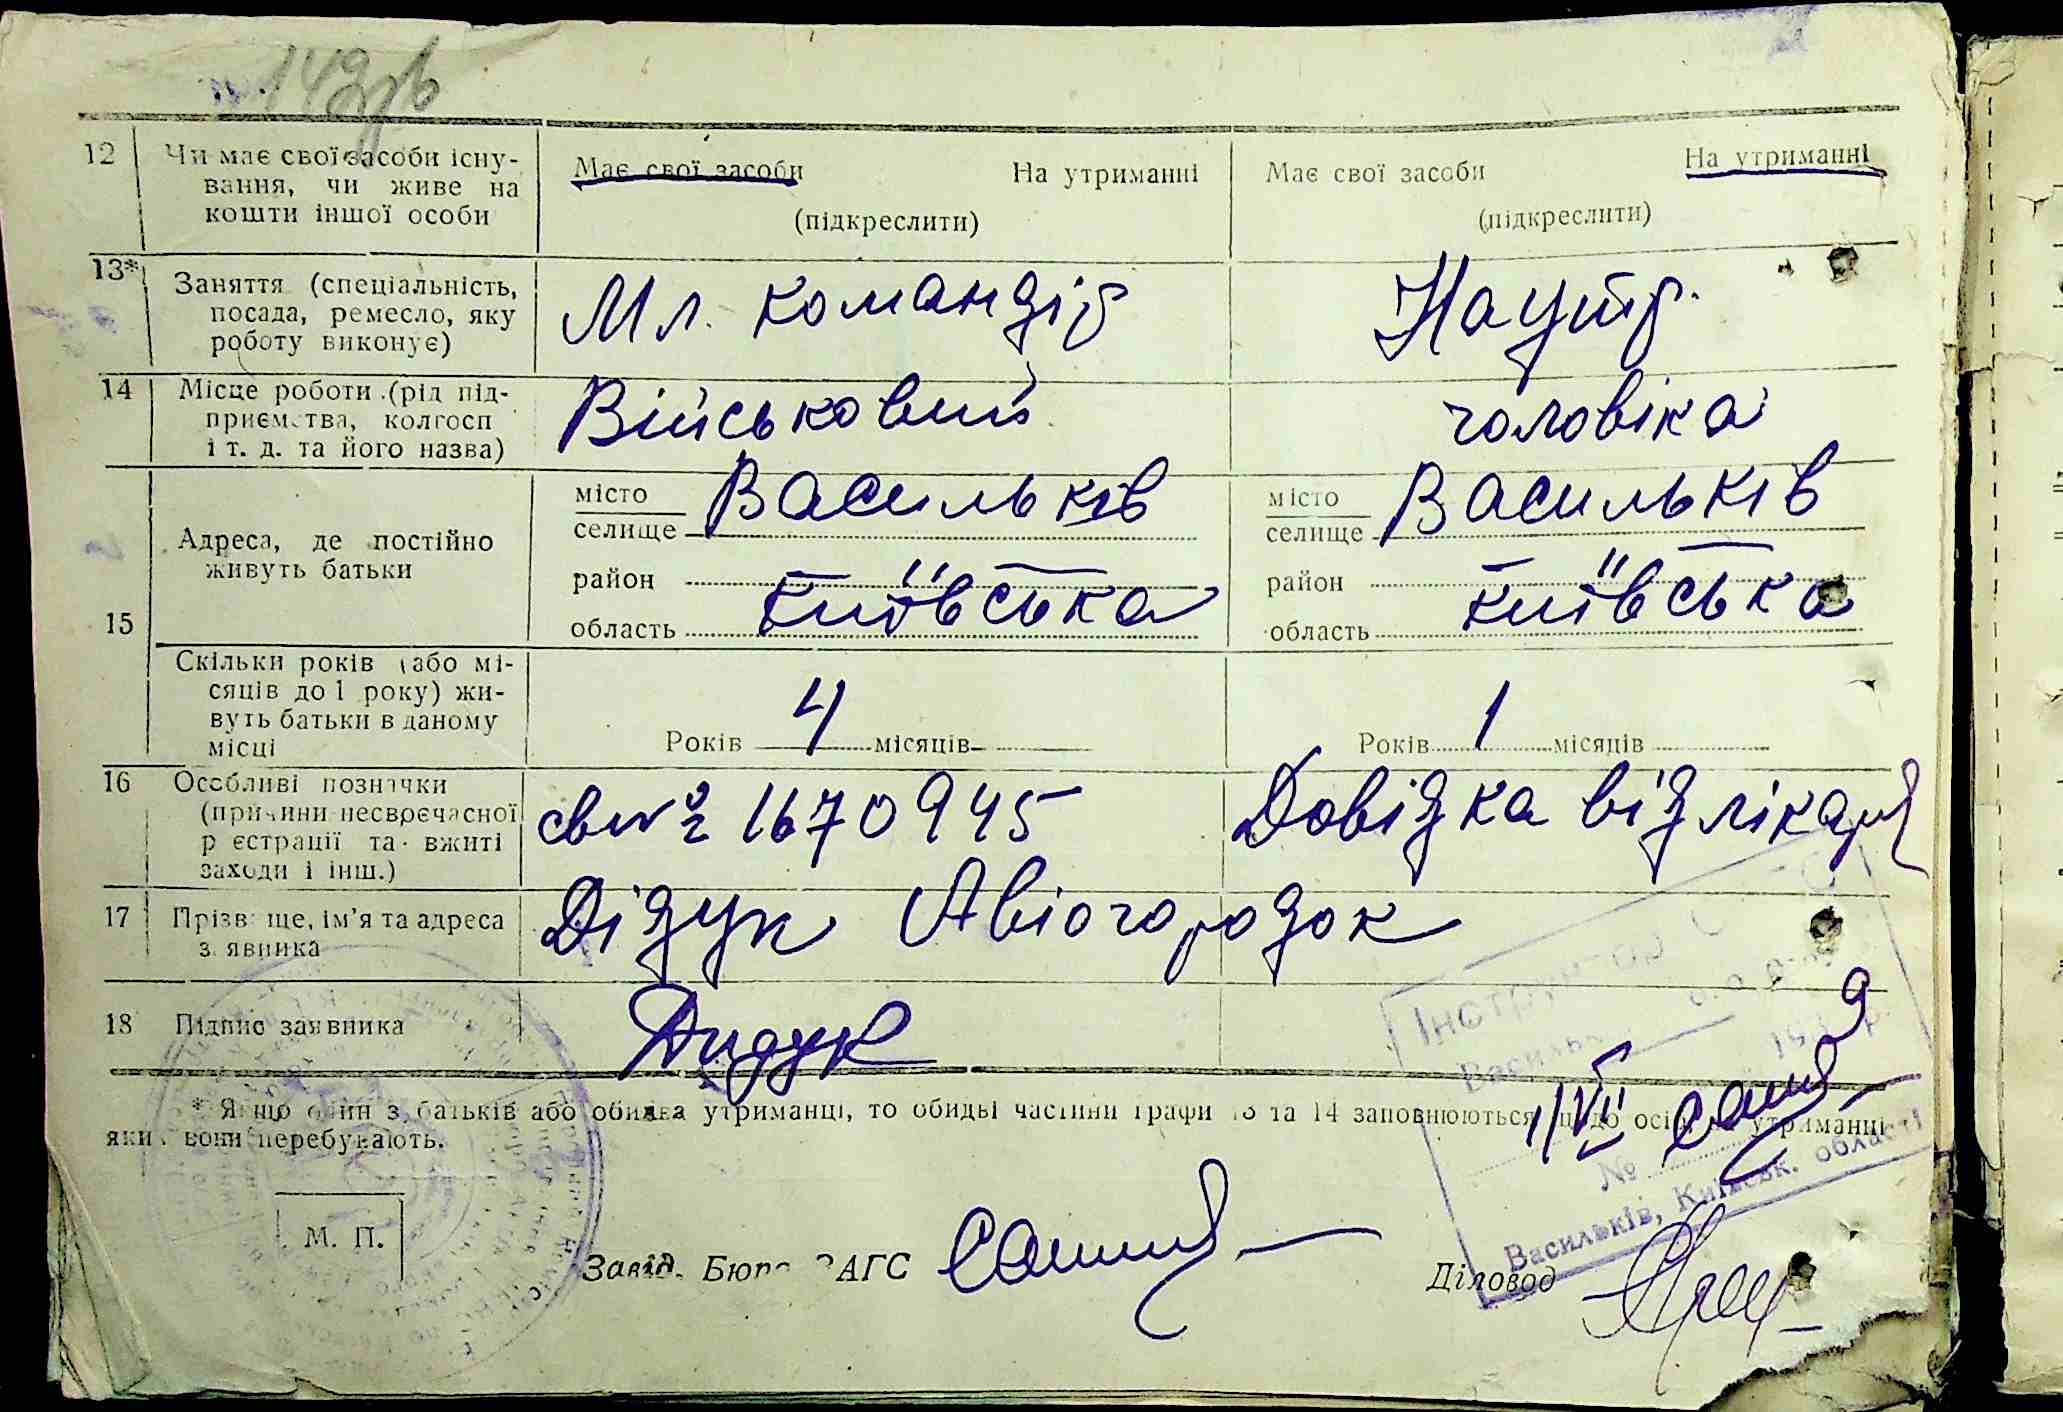 12 Чи має свої засоби існу- Має свої засоби На утриманні Має свої засоби На утриманні
вання, чи живе на
кошти іншої особи (підкреслити) (підкреслити)
13* Заняття (спеціальність, Мл. командір На утр.
посада, ремесло, яку
роботу виконує)
14 Місце роботи (рід під- Військовий чоловіка
приємства, колгосп
і т. д. та його назва)
15 Адреса, де постійно живуть батьки
місто Васильків місто Васильків
селище селище
район район
область Київська область Київська
Скільки років (або мі-
сяців до 1 року) жи-
вуть батьки в даному
місці Років 4 місяців Років 1 місяців
16 Особливі позначки
(причини несвоєчасної св № 1670945 Довідка від лікаря
реєстрації та вжиті
заходи і інш.)
17 Прізвище, ім'я та адреса Дідук Авіогородок
заявника
18 Підпис заявника Дидук
* Якщо один з батьків або обидва утриманці, то обидві частини графи 13 та 14 заповнюються щодо осіб, утриманці
яких вони перебувають.
М. П.
Завід. Бюро ЗАГС
Діловод
Інструктор
№
Васильків, Київськ. області